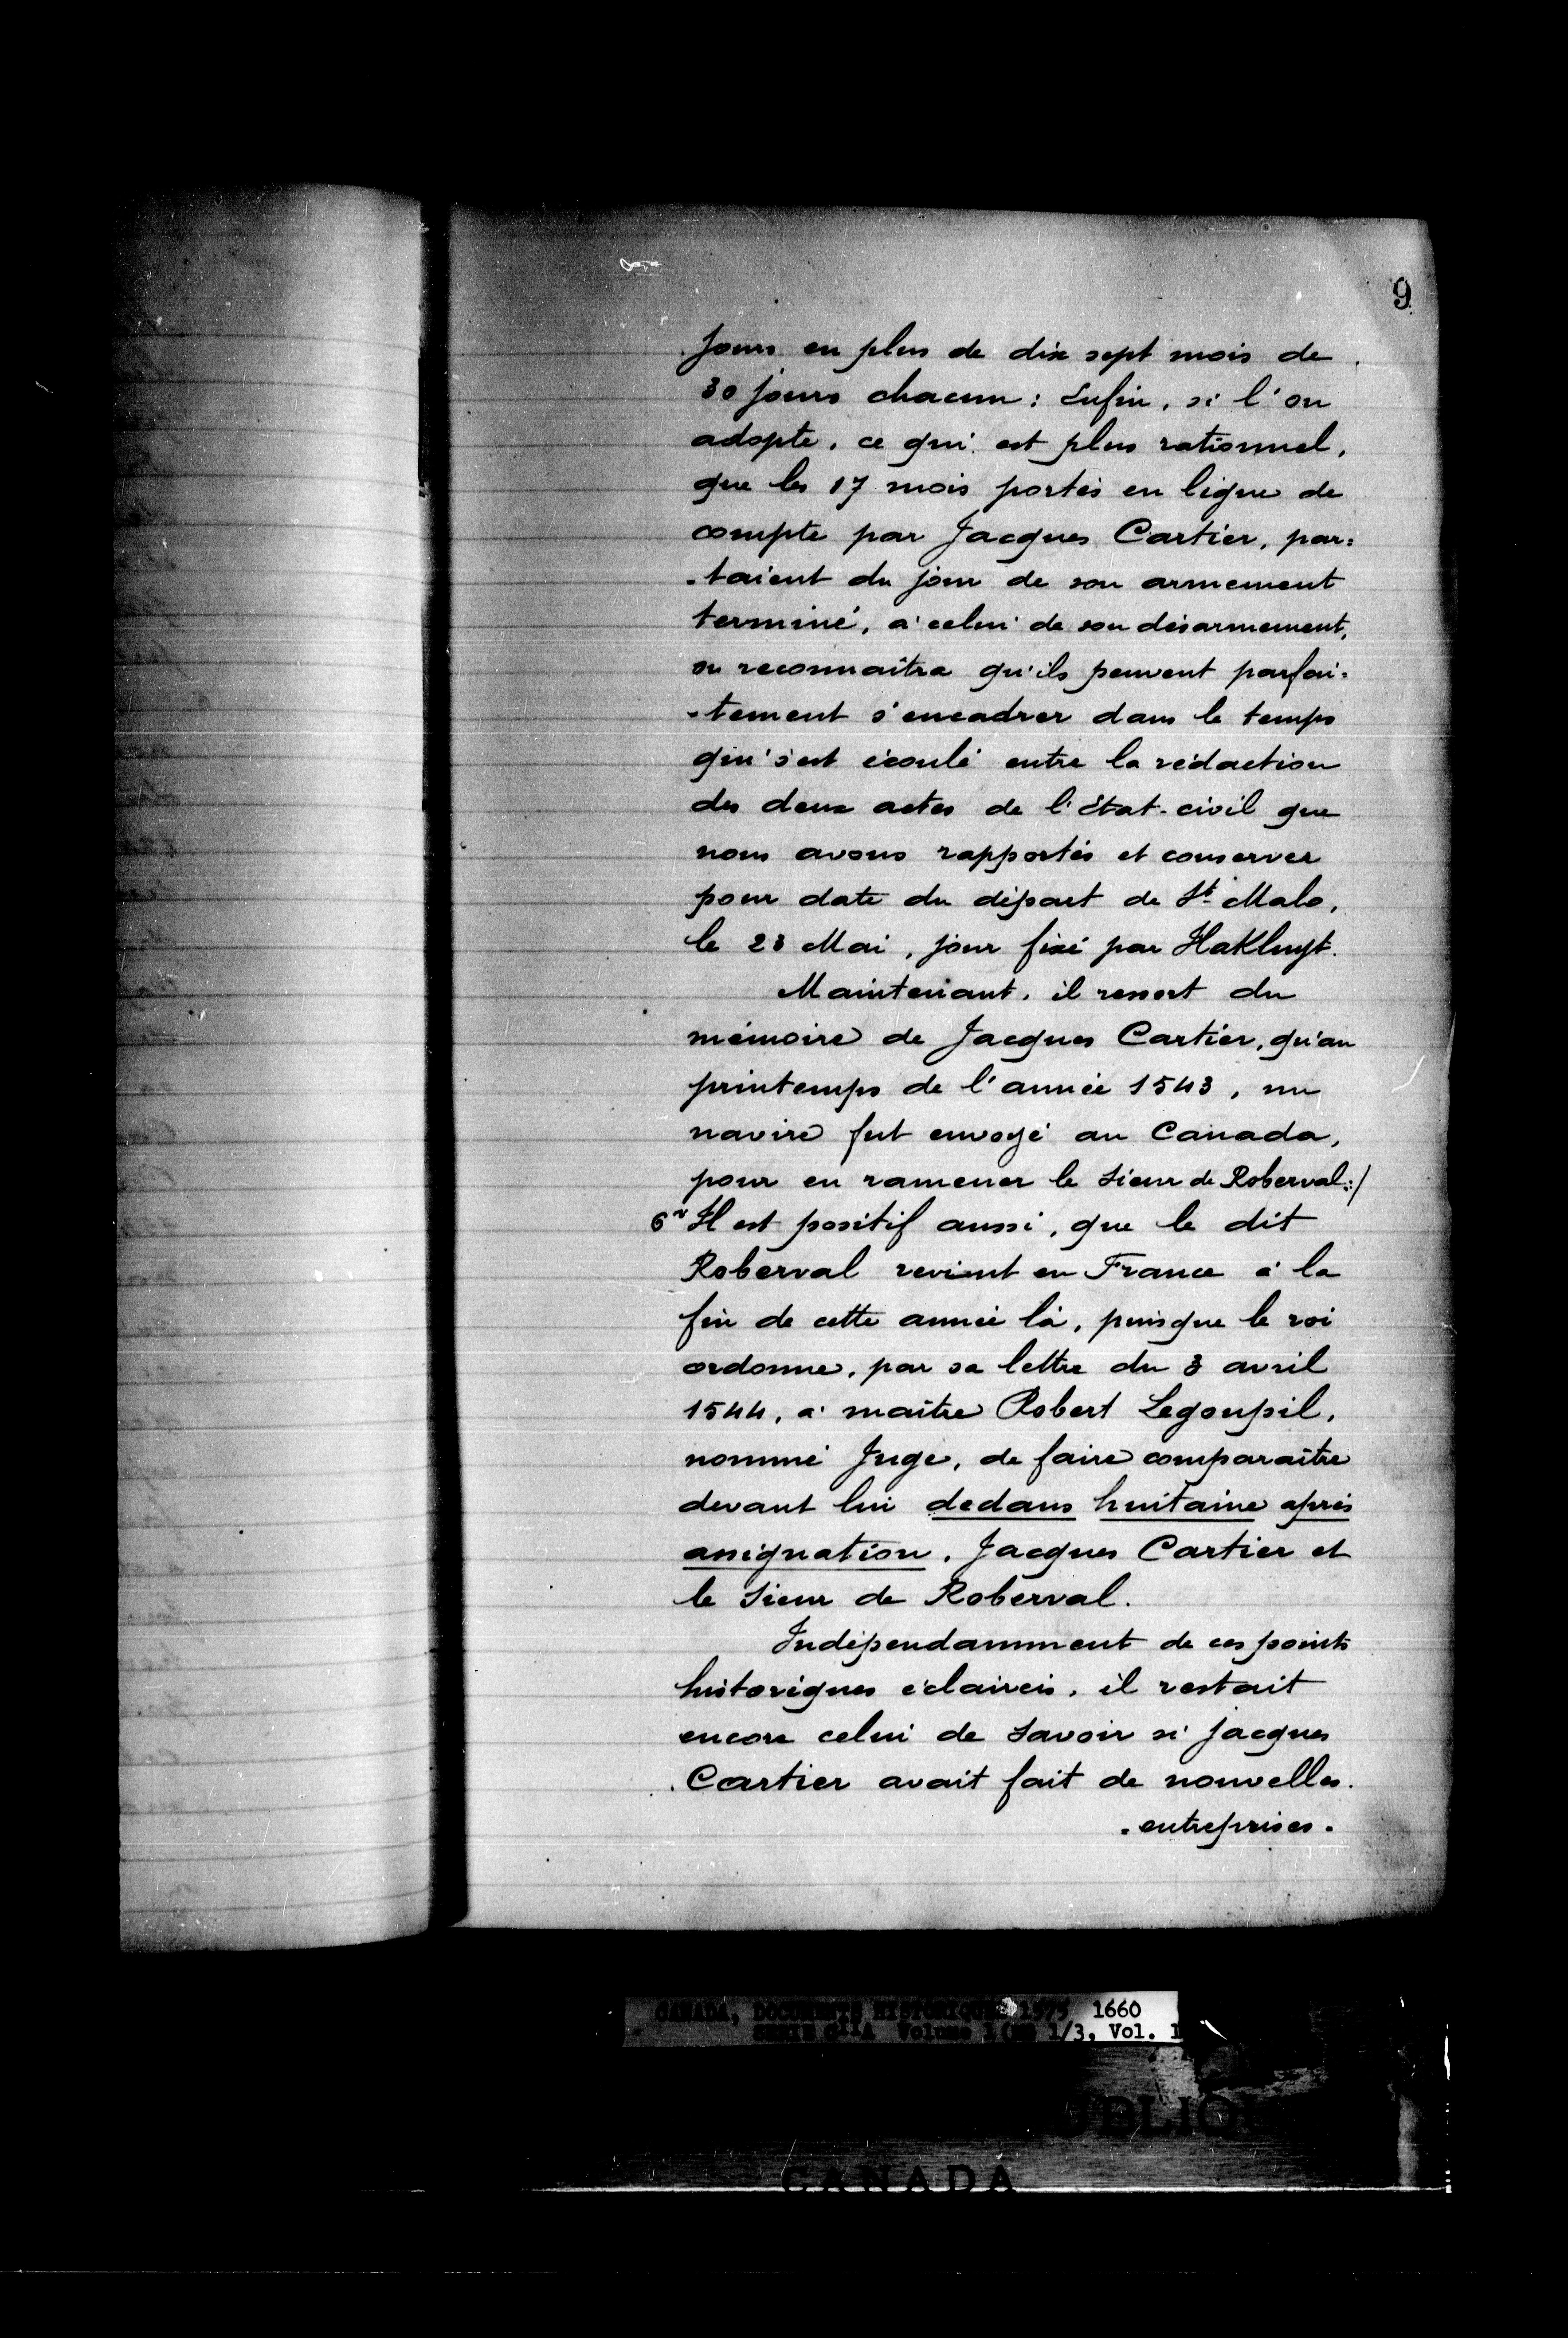 9
jours en plus de dix sept mois de
30 jours chacun : Enfin, si l'on
adopte, ce qui est plus rationnel,
que les 17 mois portés en ligne de
compte par Jacques Cartier, par=
-taient du jour de son armement
terminé, à celui de son désarmement,
on reconnaitra qu'ils peuvent parfai-
-tement s'encadrer dans le temps
qui s'est écoulé entre la rédaction
des deux actes de l'Etat-civil que
nous avons rapportés et conserver
pour date du départ de St Malo,
le 23 Mai, jour fixé par HaKluyt.
Maintenant, il ressort du
mémoire de Jacques Cartier, qu'au
printemps de l'année 1543, un
navire fut envoyé au Canada,
pour en ramener le Sieur de Roberval:/
6° Il est positif aussi, que le dit
Roberval revient en France à la
fin de cette année là, puisque le roi
ordonne, par sa lettre du 3 avril
1544, à maître Robert Legoupil,
nommé Juge, de faire comparaître
devant lui dedans huitaine après
assignation, Jacques Cartier et
le Sieur de Roberval.
Indépendamment de ces points
historiques éclaircis, il restait
encore celui de Savoir si Jacques
Cartier avait fait de nouvelles
. entreprises.
CANADA, DOCUMENTS HISTORIQUES 1660
SERIE C11A Volume 1/3, Vol. 1
CANADA